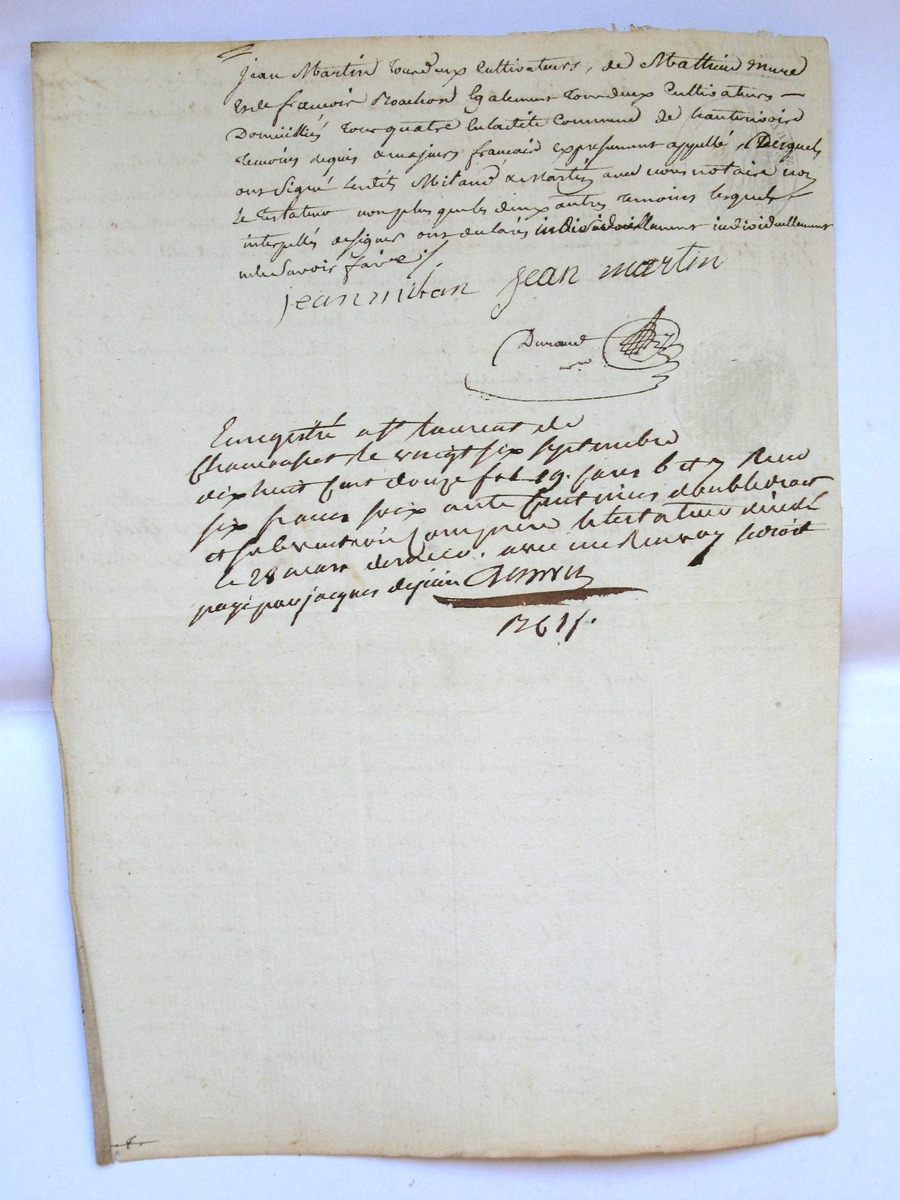 jean Martin tous deux cultivateurs, de Mathieu mure
et de françois Rochon Egalement Tous deux cultivateurs —
Domiciliés Tous quatre en ladite commune de hauterivoire
temoins requis a majeurs francais expressement appellés, Desquels
ont signé lesdits Miland & Martin avec nous notaire non
le Testateur non plus que les deux autres temoins lesquels
interpellés de signer ont declarés individuellement individuellement
ne le savoir faire ./.
jean milan jean martin
Durand
nre
Enregistré a st laurent de
Chamousset le vingt six septembre
dix huit cent douze fol. 19. cases 6 et 7 Recu
six francs soix ante centimes double droit
et subvention compris le testateur décédé
le 28 mars dernier. avec un Renvoy le droit
payé par jacques dejoin